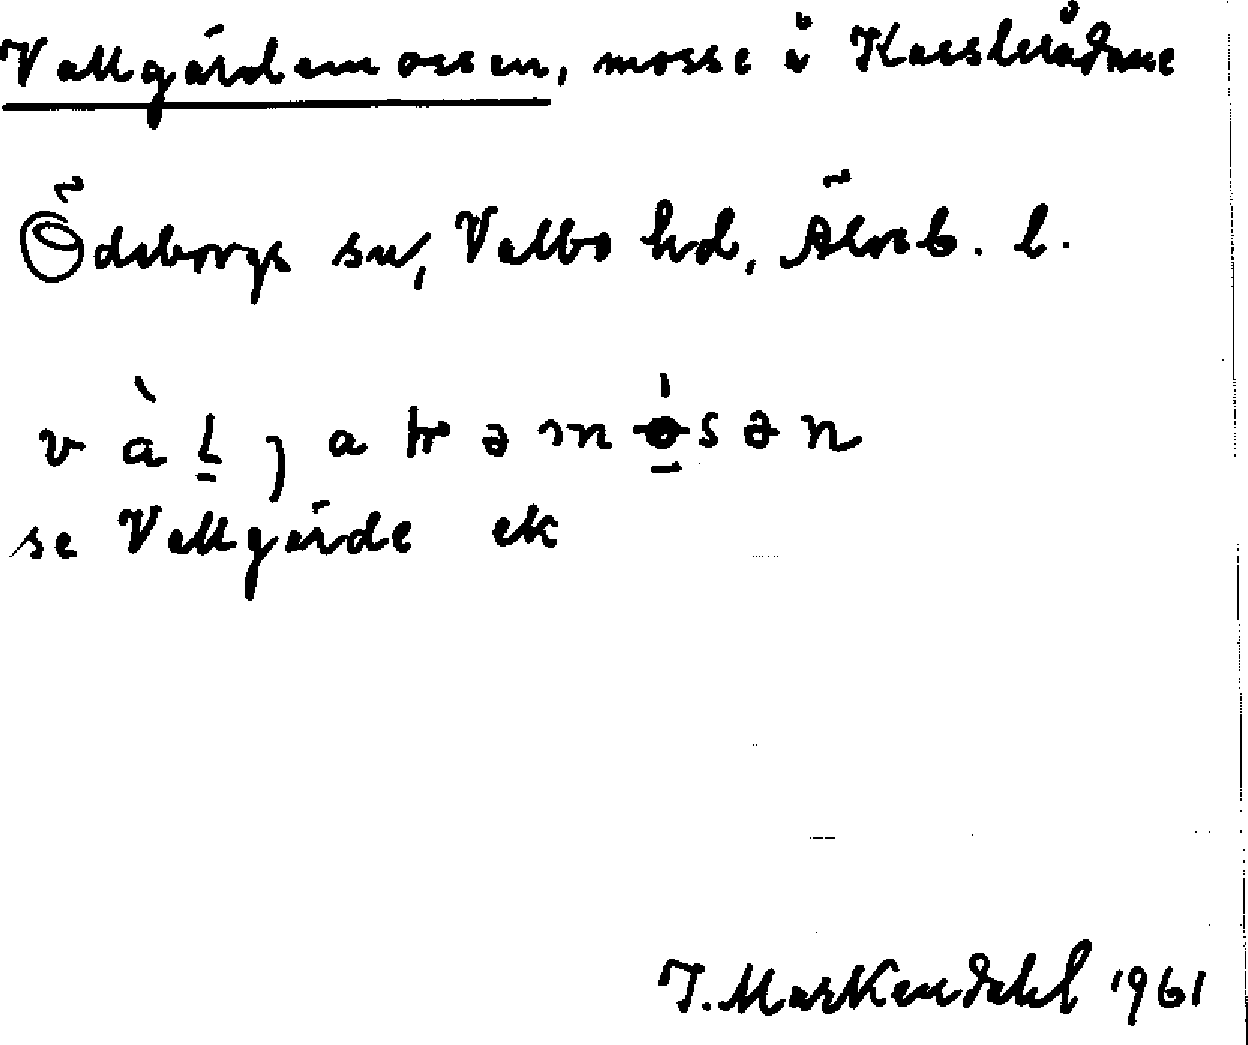 Vallgärdemossen, mosse i Kasslerådane
Ödeborgs sn, Valbo hd, Älvsb. l.
se Vallgärde ek
J. Markendahl 1961